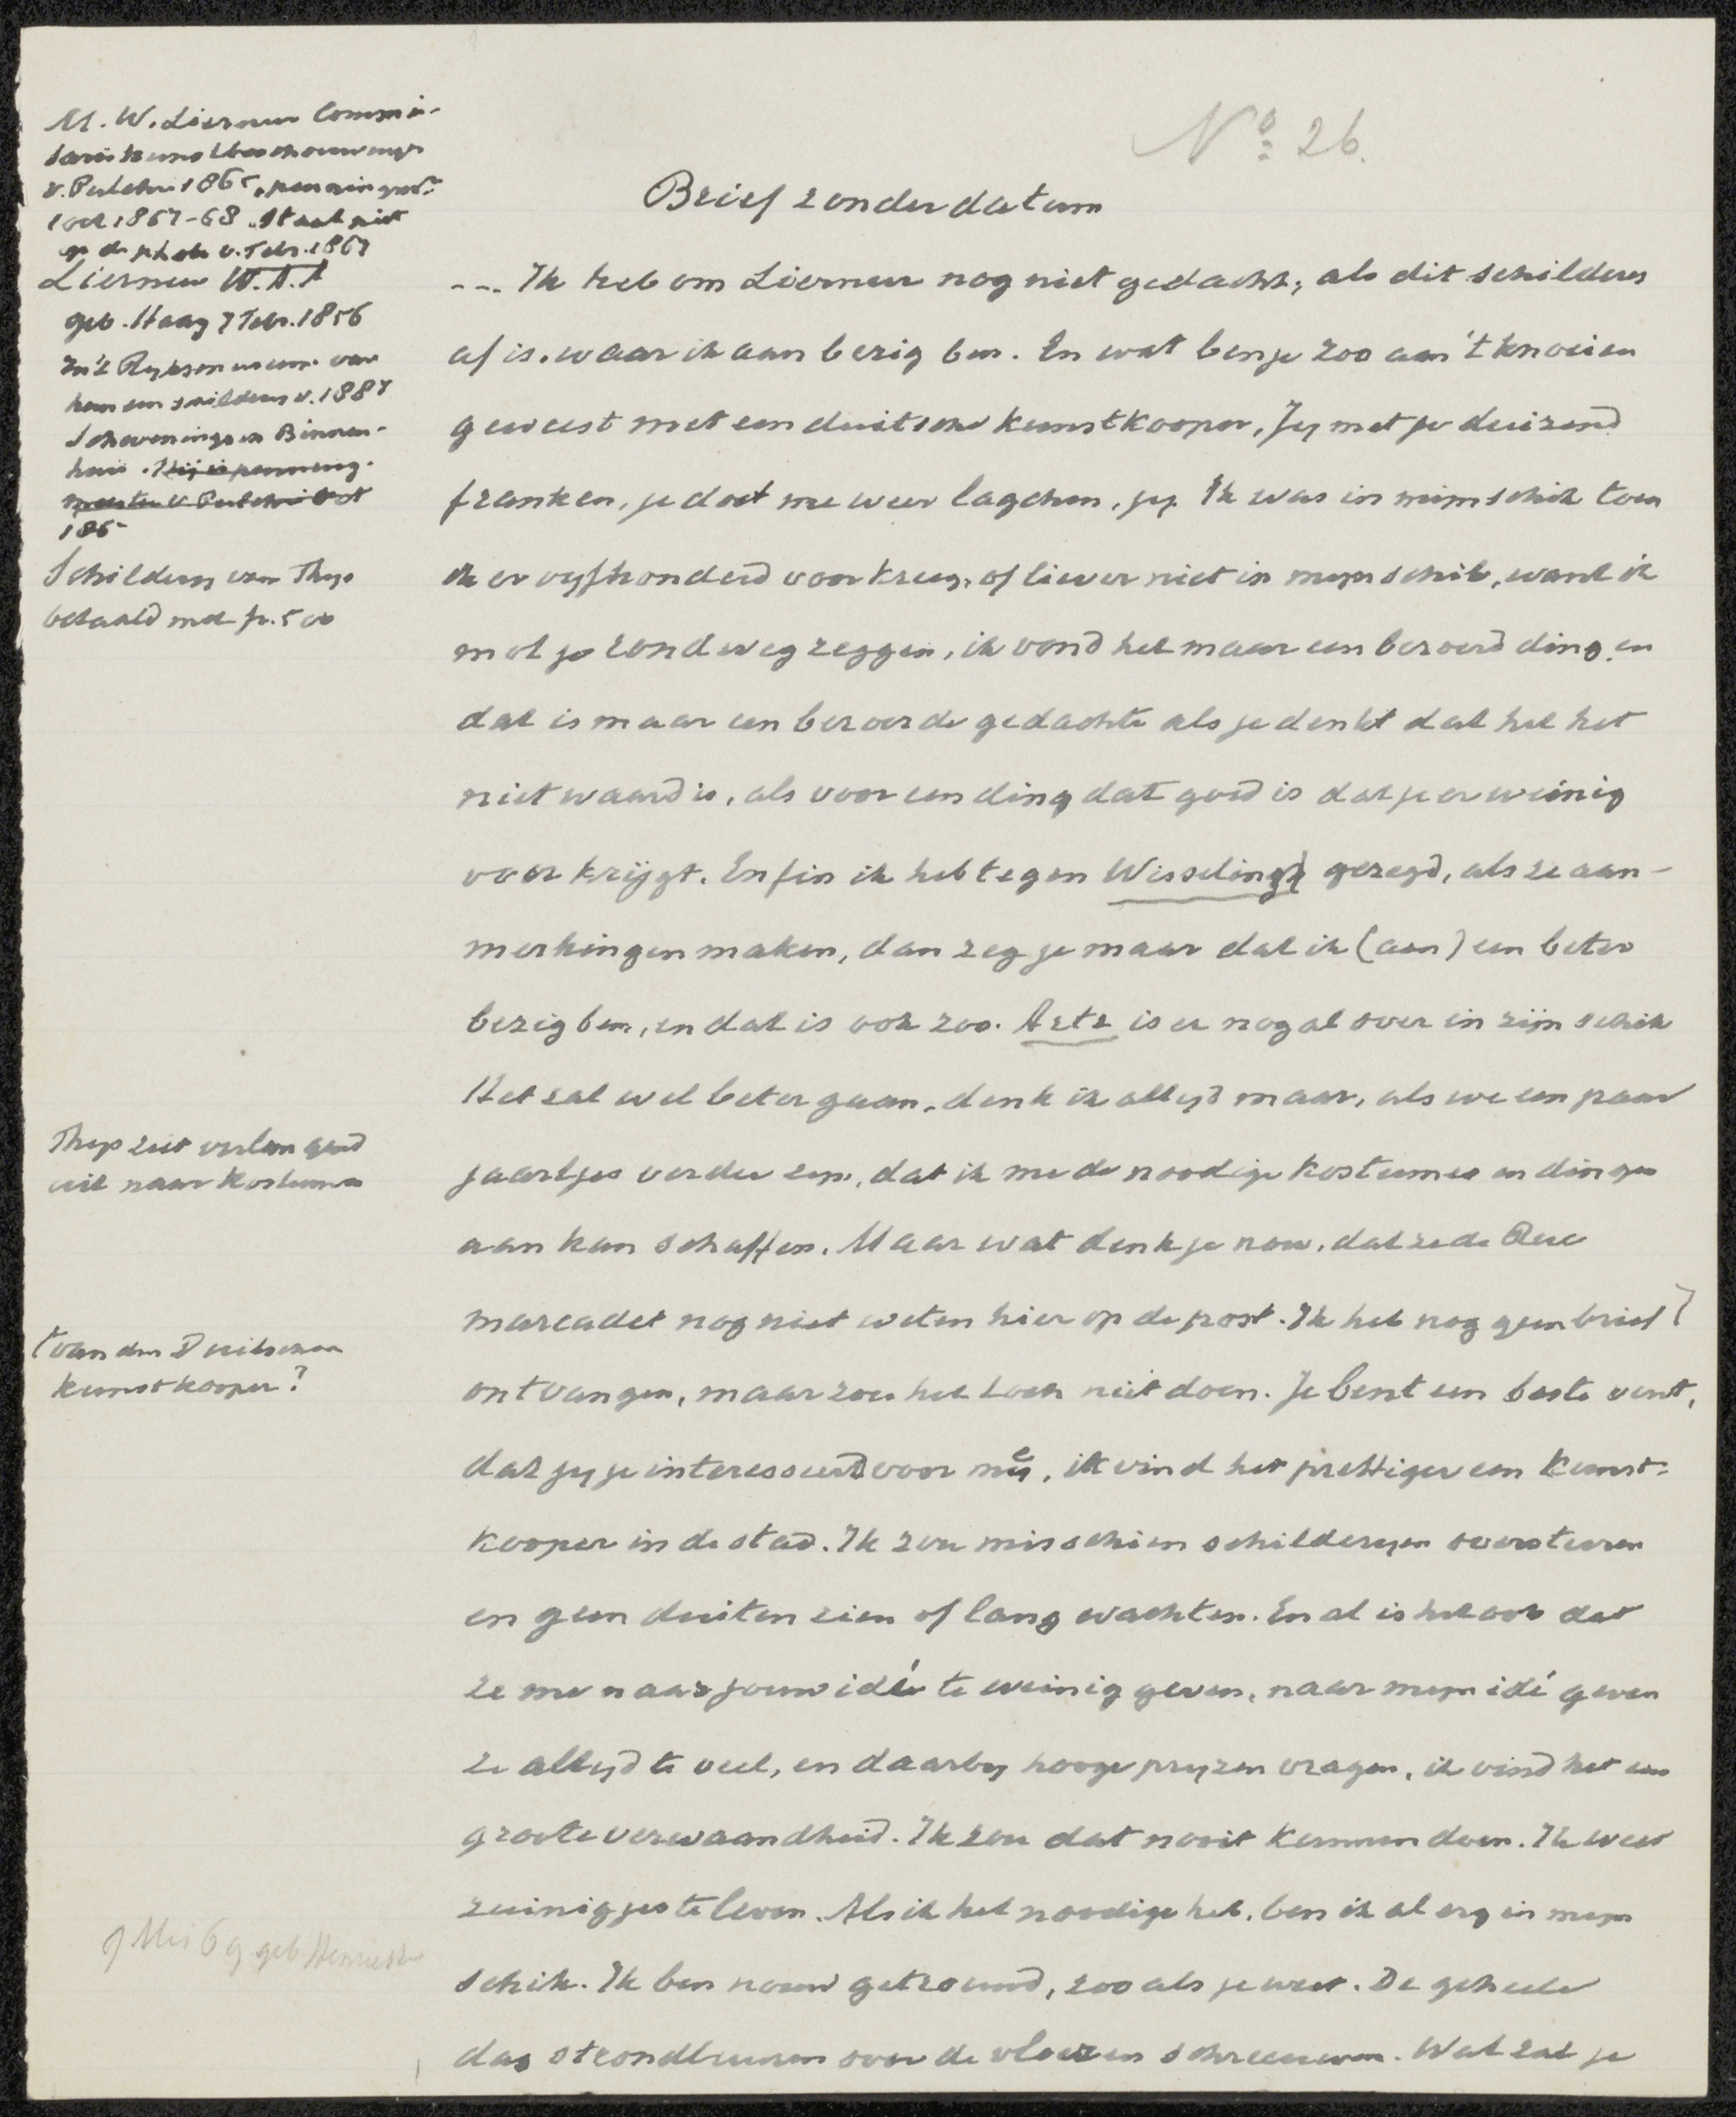 No: 26.
Brief zonder datum
M. W. Liernur Commis-
saris kunstbeschouwingen
v. Pulchri 1865, penningmr.
1 oct. 1867-68. Staat niet
op de photo v. Febr. 1867
Liernur W.A.A
geb. Haag 7 Febr. 1856
In 't Ryksmuseum van
hem een schildery v. 1887
Scheveningsch Binnen-
huis. Hij is penning-
meester v. Pulchri Oct
186
Schildery van Thys
betaald met fr. 500
Thys ziet verlangend
uit naar Kostuums
(van den Duitschen
kunstkooper?
9 Mei 69 geb. Henriette
--- Ik heb om Liernur nog niet gedacht; als dit schildery
af is, waar ik aan bezig ben. En wat ben je zoo aan 't knoeien
geweest met een duitsche kunstkooper, Jy met je duizend
franken, je doet me weer lagchen, jy. Ik was in mijn schik toen
ik er vyfhonderd voor kreeg, of liever niet in myn schik, want ik
mot je rondweg zeggen, ik vond het maar een beroerd ding, en
dat is maar een beroerde gedachte als je denkt dat het het
niet waard is, als voor een ding dat goed is dat je er weinig
voor krijgt. Enfin ik heb tegen Wisselingh gezegd, als ze aan-
merkingen maken, dan zeg je maar dat ik (aan) een beter
bezig ben, en dat is ook zoo. Artz is er nogal over in zijn schik
Het zal wel beter gaan, denk ik altyd maar, als we een paar
jaartjes verder zyn, dat ik me de noodige kostumes en dingen
aan kan schaffen. Maar wat denk je nou, dat ze de Rue
marcadet nog niet weten hier op de post. Ik heb nog geen brief )
ontvangen, maar zou het toch niet doen. Je bent een beste vent,
dat jy je interesseerd voor me, ik vind het prettiger een kunst-
kooper in de stad. Ik zou misschien schilderyen oversturen
en geen duiten zien of lang wachten. En al is het ook dat
ze me naar jouw idé te weinig geven, naar myn idé geven
ze altyd te veel, en daarby hooge pryzen vragen, ik vind het een
groote verwaandheid. Ik zou dat nooit kunnen doen. Ik weet
zuinigjes te leven. Als ik het noodige heb, ben ik al erg in myn
schik. Ik ben nouw getrouwd, zooals je weet. De geheele
dag strondluiren over de vloer en schreeuwen. Wat zal je